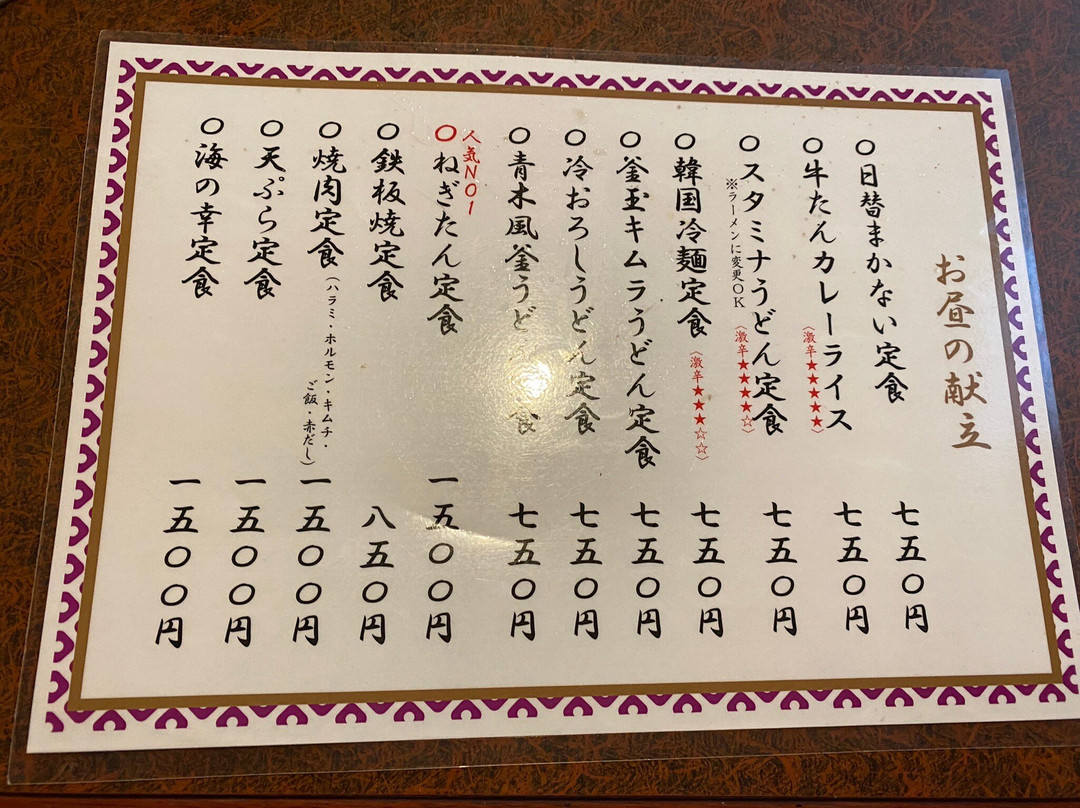 お昼の献立
〇日替まかない定食 七五〇円
〇牛たんカレーライス 七五〇円
〈激辛★★★★★〉
〇スタミナうどん定食 七五〇円
〈激辛★★★★☆〉
※ラーメンに変更OK
〇韓国冷麺定食 七五〇円
〈激辛★★★☆☆〉
〇釜玉キムラうどん定食 七五〇円
〇冷おろしうどん定食 七五〇円
〇青木風釜うど 食 七五〇円
人気NO1
〇ねぎたん定食 一五〇〇円
〇鉄板焼定食 八五〇円
〇焼肉定食 一五〇〇円
(ハラミ・ホルモン・キムチ・
ご飯・赤だし)
〇天ぷら定食 一五〇〇円
〇海の幸定食 一五〇〇円